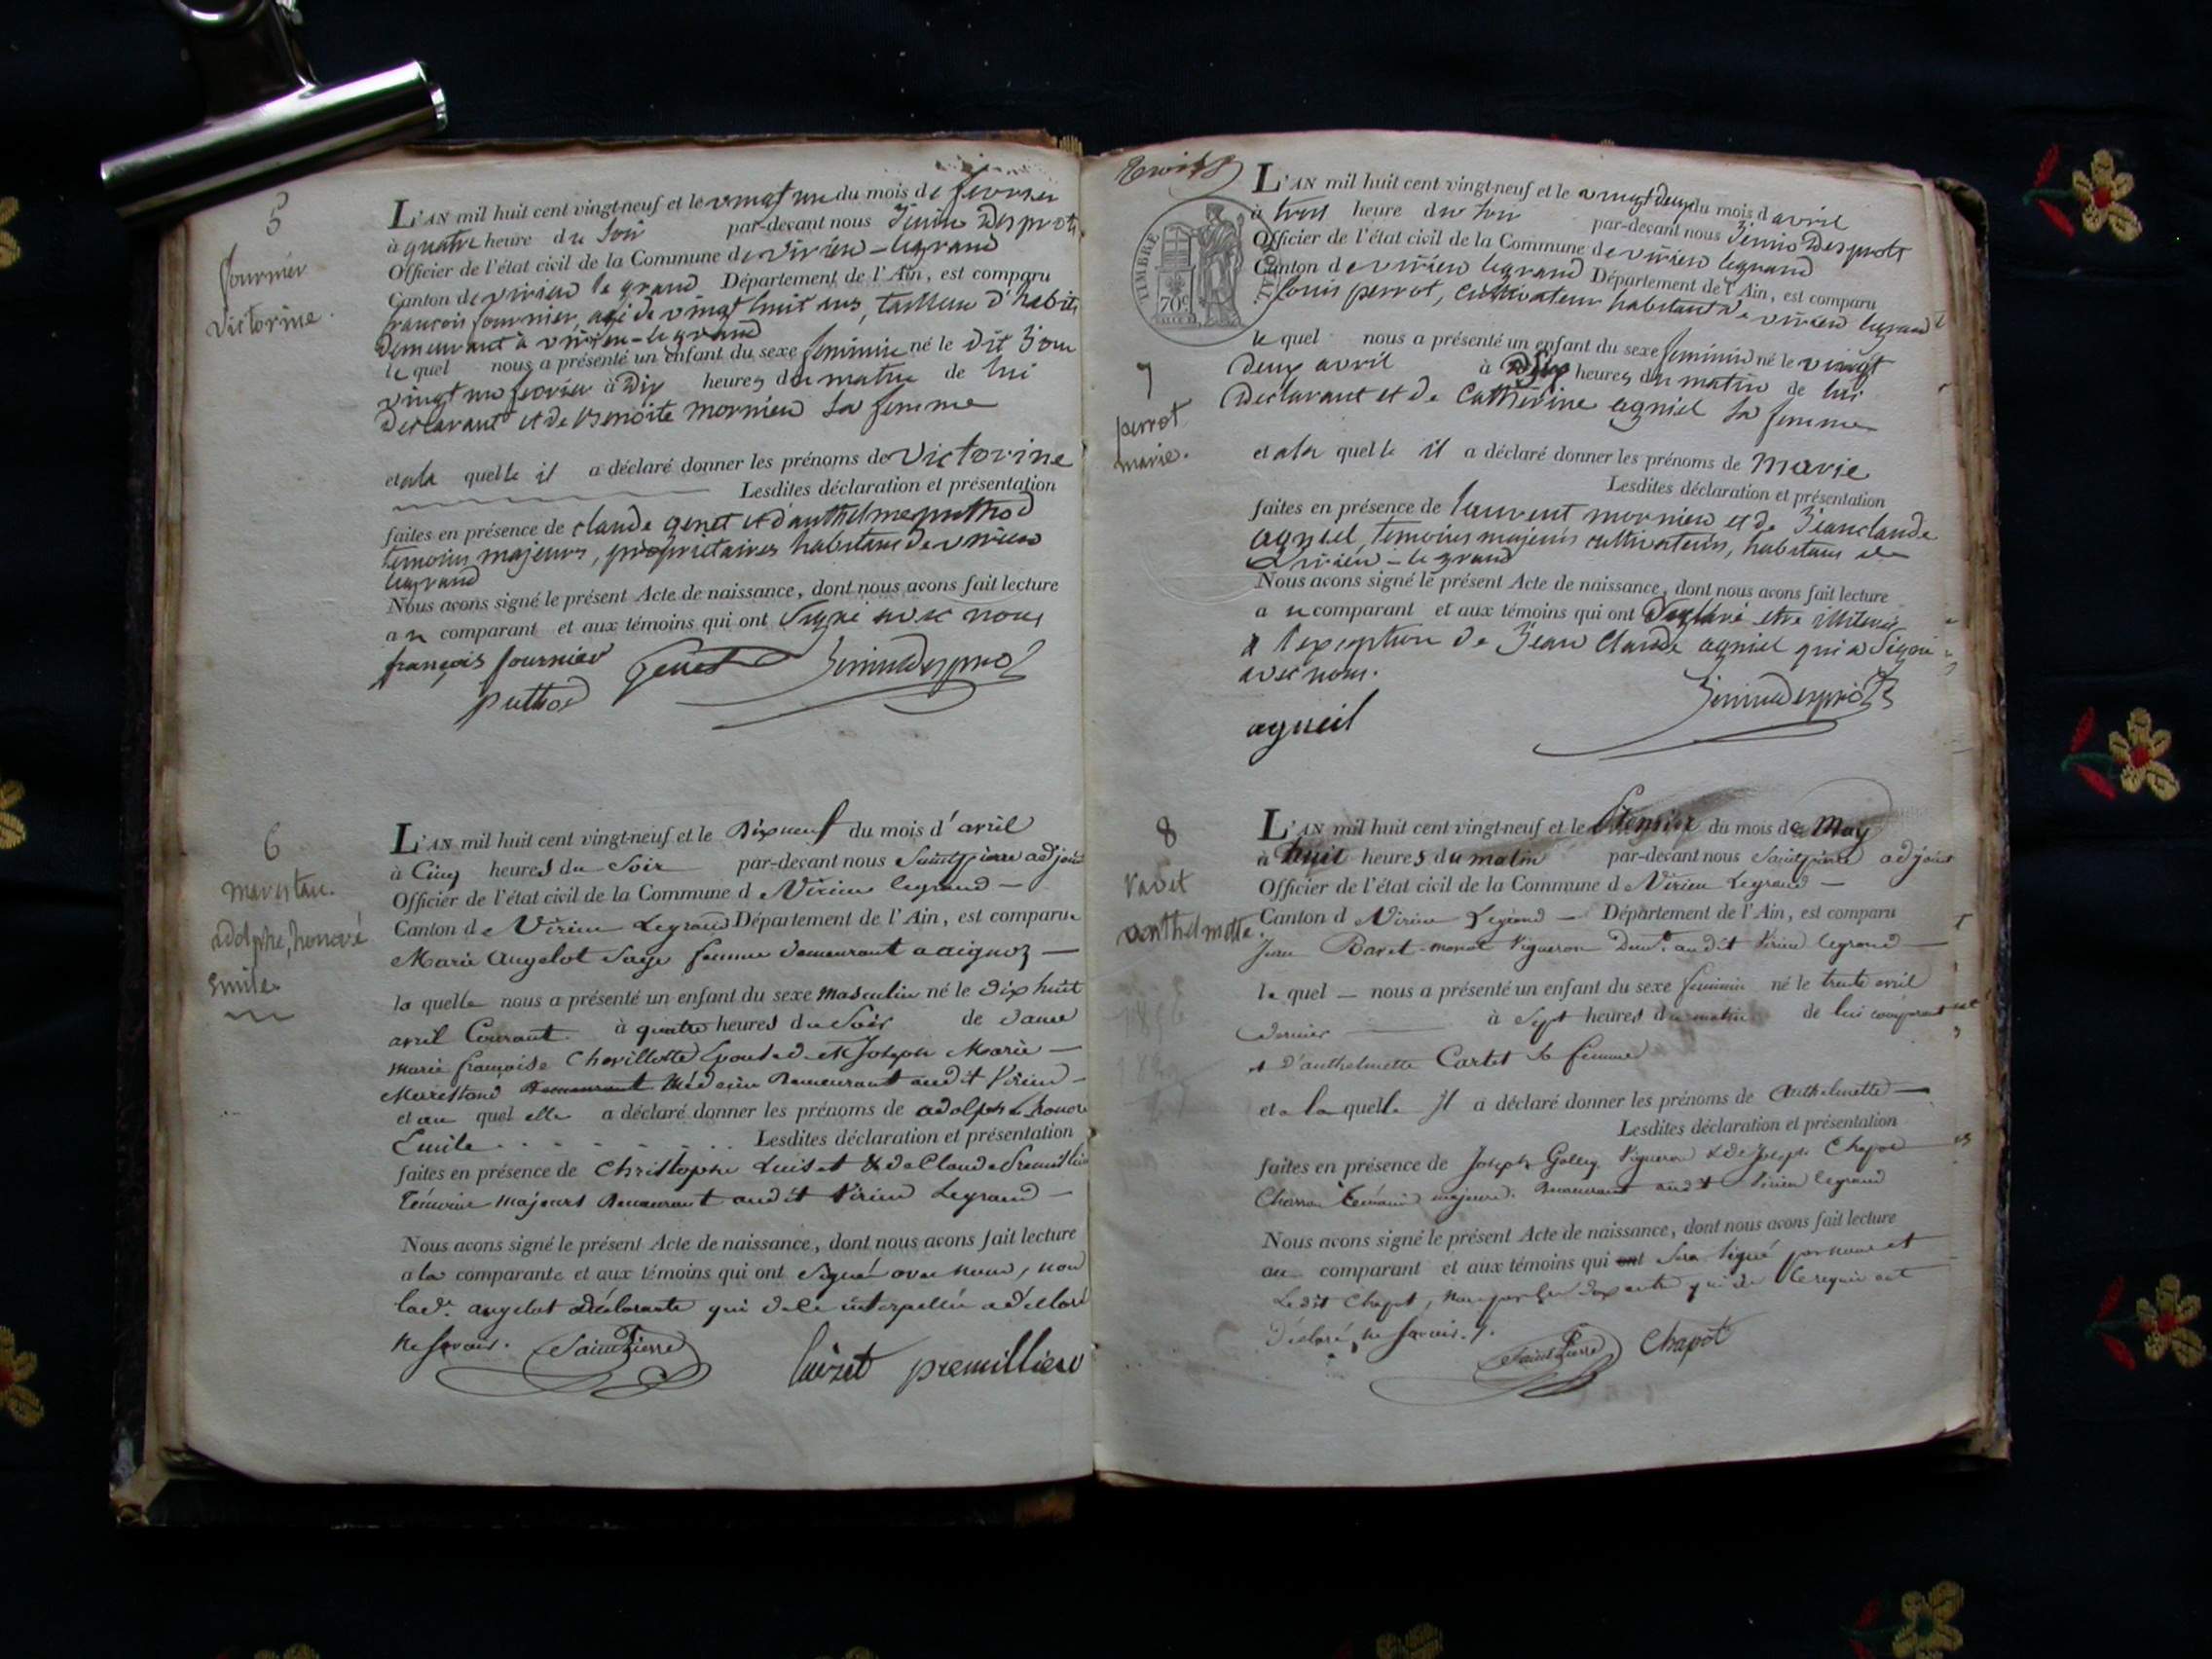 5
fournier
victorine.
L'AN mil huit cent vingt-neuf et le vingt un du mois de fevrier
à quatre heure du Soir par-devant nous
Officier de l'état civil de la Commune de virieu-legrand
Canton de virieu le grand Département de l'Ain, est comparu
francois fournier, agé de vingt huit ans, tailleur d'habits
demeurant à virieu-le grand
le quel nous a présenté un enfant du sexe feminin né le dit Jour
vingt un fevrier à Dix heures du matin de lui
Declarant et de Benoite mornieu Sa femme
et a la quelle il a déclaré donner les prénoms de Victorine
Lesdites déclaration et présentation
faites en présence de claude genet et d'anthelme puthod
temoins majeurs, propriétaires habitans de virieu
legrand
Nous avons signé le présent Acte de naissance, dont nous avons fait lecture
au comparant et aux témoins qui ont Signé avec nous
françois fournier Genet
puthod
6
marestan.
adolphe, honoré
Emile
L'AN mil huit cent vingt-neuf et le Dixneuf du mois d'avril
à Cinq heures du Soir par-devant nous Saintpierre adjoint
Officier de l'état civil de la Commune de Virieu legrand —
Canton de Virieu Legrand Département de l'Ain, est comparue
Marie Angelot Sage femme demeurant a aignoz —
la quelle nous a présenté un enfant du sexe masculin né le dix huit
avril Courant à quatre heures du Soir de dame
marie françoise Chevillotte Epouse de Mr Joseph Marie —
Marestand Demeurant Médecin Demeurant audit Virieu —
et au quel elle a déclaré donner les prénoms de adolphe honoré
Emile Lesdites déclaration et présentation
faites en présence de Christophe Luiset & de Claude Premillieu
Témoins majeurs Demeurant audit Virieu Legrand —
Nous avons signé le présent Acte de naissance, dont nous avons fait lecture
a la comparante et aux témoins qui ont Signé avec nous, non
lade. angelot déclarante qui de ce interpellée a déclaré
ne savoir. SaintPierre luizet premillieu
TIMBRE ROYAL
70c
7
perrot
marie.
L'AN mil huit cent vingt-neuf et le vingt deux du mois d avril
à trois heure du Soir par-devant nous
Officier de l'état civil de la Commune de virieu legrand
Canton de virieu legrand Département de l'Ain, est comparu
louis perrot, cultivateur habitant de virieu legrand
le quel nous a présenté un enfant du sexe feminin né le vingt
deux avril à Dix heures du matin de lui
Declarant et de Catherine agniel Sa femme
et a la quelle il a déclaré donner les prénoms de Marie
Lesdites déclaration et présentation
faites en présence de laurent mornieu et de Jean claude
agniel, temoins majeurs cultivateurs, habitans de
virieu-le grand
Nous avons signé le présent Acte de naissance, dont nous avons fait lecture
au comparant et aux témoins qui ont Declaré etre illiteré
a l'exception de Jean Claude agniel qui a Signé
avec nous.
agneil
8
anthelmette.
L'AN mil huit cent vingt-neuf et le Premier du mois de May
à huit heures du matin par-devant nous Saintpierre adjoint
Officier de l'état civil de la Commune de Virieu Legrand —
Canton d Virieu Legrand — Département de l'Ain, est comparu
Vigneron audit Virieu legrand —
le quel — nous a présenté un enfant du sexe feminin né le trente avril
dernier à Sept heures du matin de lui comparant
et d'anthelmette Cartet Sa femme
et a la quelle Il a déclaré donner les prénoms de Anthelmette —
Lesdites déclaration et présentation
faites en présence de Joseph Vigneron & de Joseph Chapot
Charron Témoins majeurs. Demeurant audit Virieu legrand
Nous avons signé le présent Acte de naissance, dont nous avons fait lecture
au comparant et aux témoins qui ont Sera Signé par nous et
Ledit Chapot, qui de ce requis ont
déclaré ne savoir.
SaintPierre Chapot